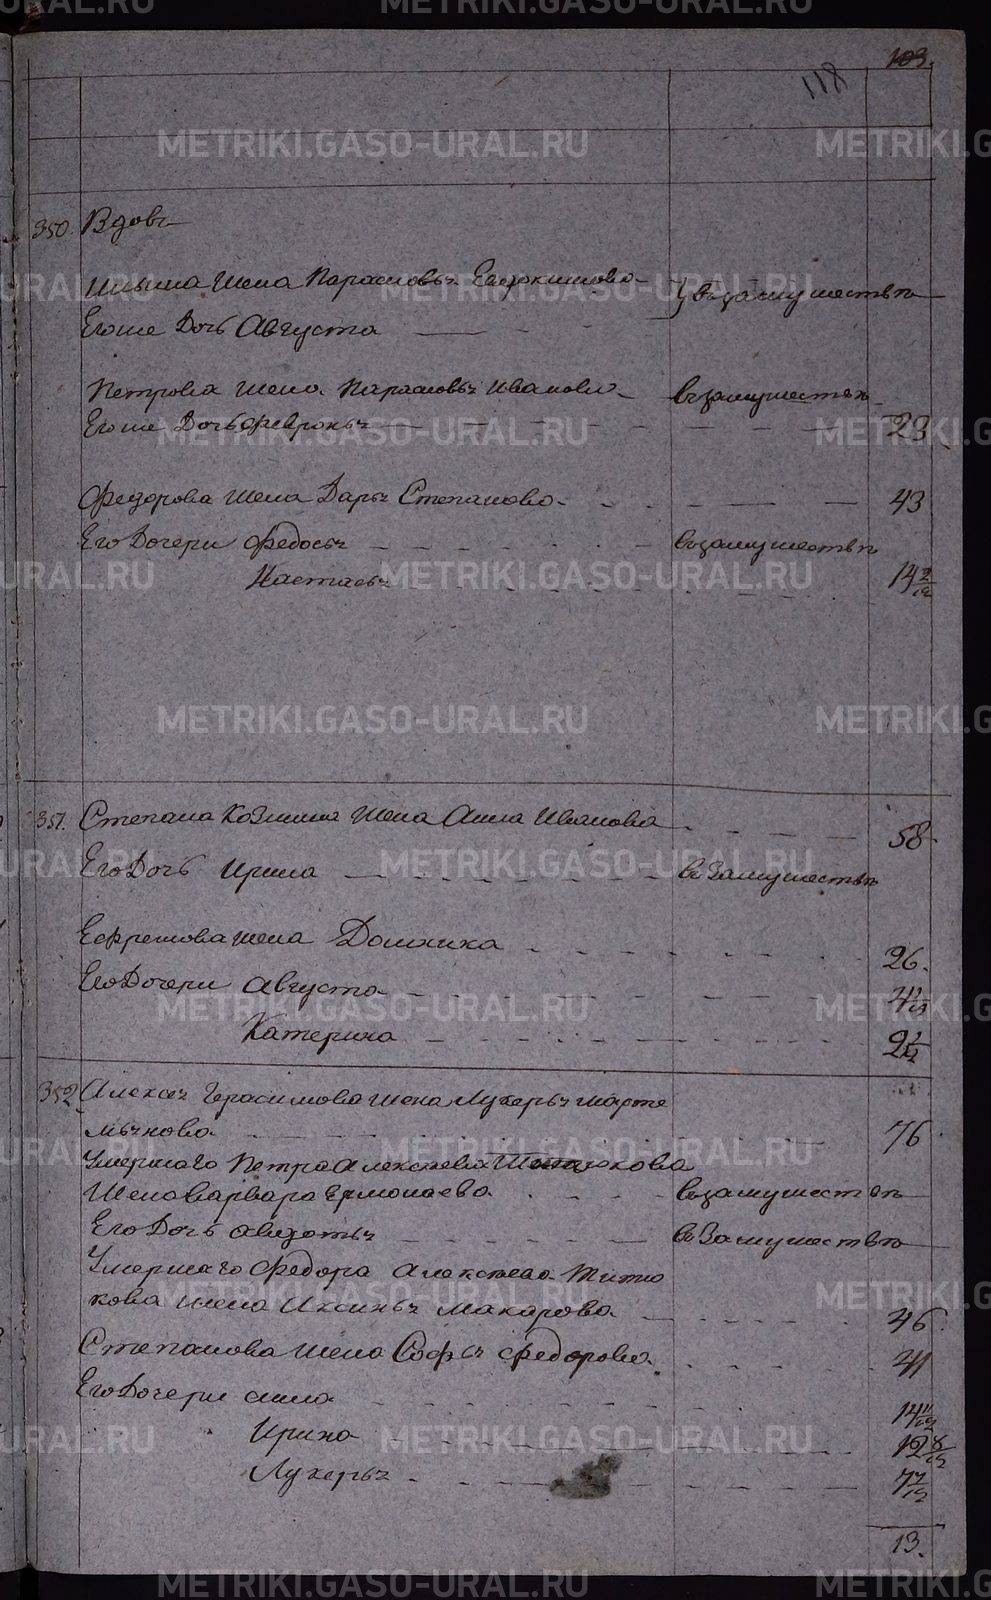 103.
118
350. Вдовъ
Ильина жена Парасковья Евдокимова } взамужествѣ
Егоже дочь Августа
Петрова жена Парасковья Иванова взамужествѣ
Егоже дочь Февронья 23
Федорова жена Дарья Степанова 43
Его дочери Федосья взамужествѣ
Настасья 14 2/12
351. Степана Козмина жена Анна Иванова 58
Его дочь Ирина взамужествѣ
Ефремова жена Домника 26.
Его дочери Августа
Катерина
352. Алексея Герасимова жена Лукерья Марте
мьянова 76
Умершаго Петра Алексѣева
жена Варвара Ермолаева взамужествѣ
Его дочь Авдотья взамужествѣ
Умершаго Федора Алексѣева Титю
кова жена Аксинья Макарова 46.
Степанова жена Софья Федорова 41
Его дочери Анна 14 11/12
Ирина 12 8/12
Лукерья 7 7/12
13.
METRIKI.GASO-URAL.RU